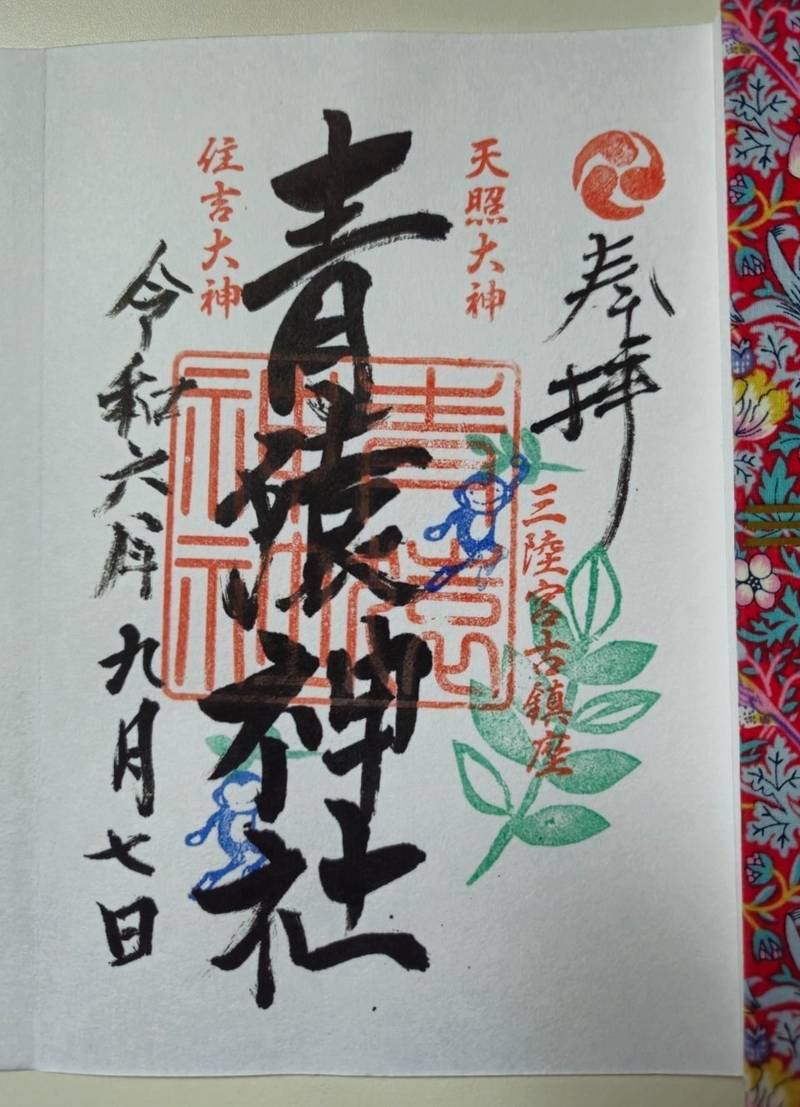 奉拝
三陸宮古鎮座
天照大神
青猿神社
青猿
神社
住吉大神
令和六年九月七日